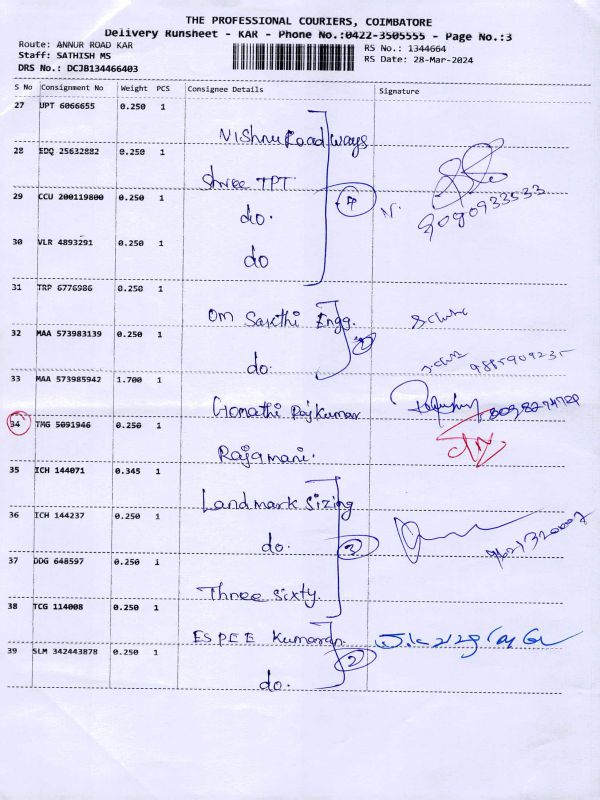 THE PROFESSIONAL COURIERS, COIMBATORE
Delivery Runsheet - KAR - Phone No.:0422-3505555 - Page No.:3
Route: ANNUR ROAD KAR
Staff: SATHISH MS
DRS No.: DCJB134466403
RS No.: 1344664
RS Date: 28-Mar-2024
S No Consignment No Weight PCS Consignee Details Signature
27 UPT 6066655 0.250 1
Vishnu Roadways
28 EDQ 25632882 0.250 1
Shree TPT
29 CCU 200119800 0.250 1
do.
9090933533
30 VLR 4893291 0.250 1
do
31 TRP 6776986 0.250 1
Om Sakthi Engg.
32 MAA 573983139 0.250 1
do.
2
33 MAA 573985942 1.700 1
Gomathi Rajkumar
34 TMG 5091946 0.250 1
Rajamani.
35 ICH 144071 0.345 1
Landmark Sizing
36 ICH 144237 0.250 1
do.
3
37 DDG 648597 0.250 1
Three Sixty.
38 TCG 114008 0.250 1
ESPEE Kumaran.
39 SLM 342443878 0.250 1
do.
2